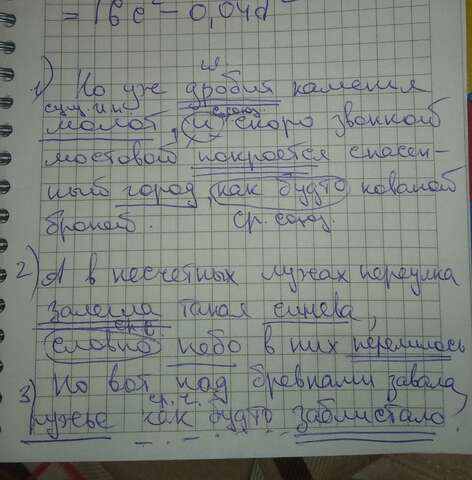 = 16 c² - 0,04d
гл.
1) Но уж дробит каменья
сущ. и.п. союз
молот, и скоро звонкой
мостовой покроется спасен-
ный город, как будто кованой
броней. ср. союз.
2) А в несчетных лужах переулка
залегла такая синева,
словно небо в них перелилось
3) Но вот над бревнами завала
ср. ч.
ружье как будто заблистало.